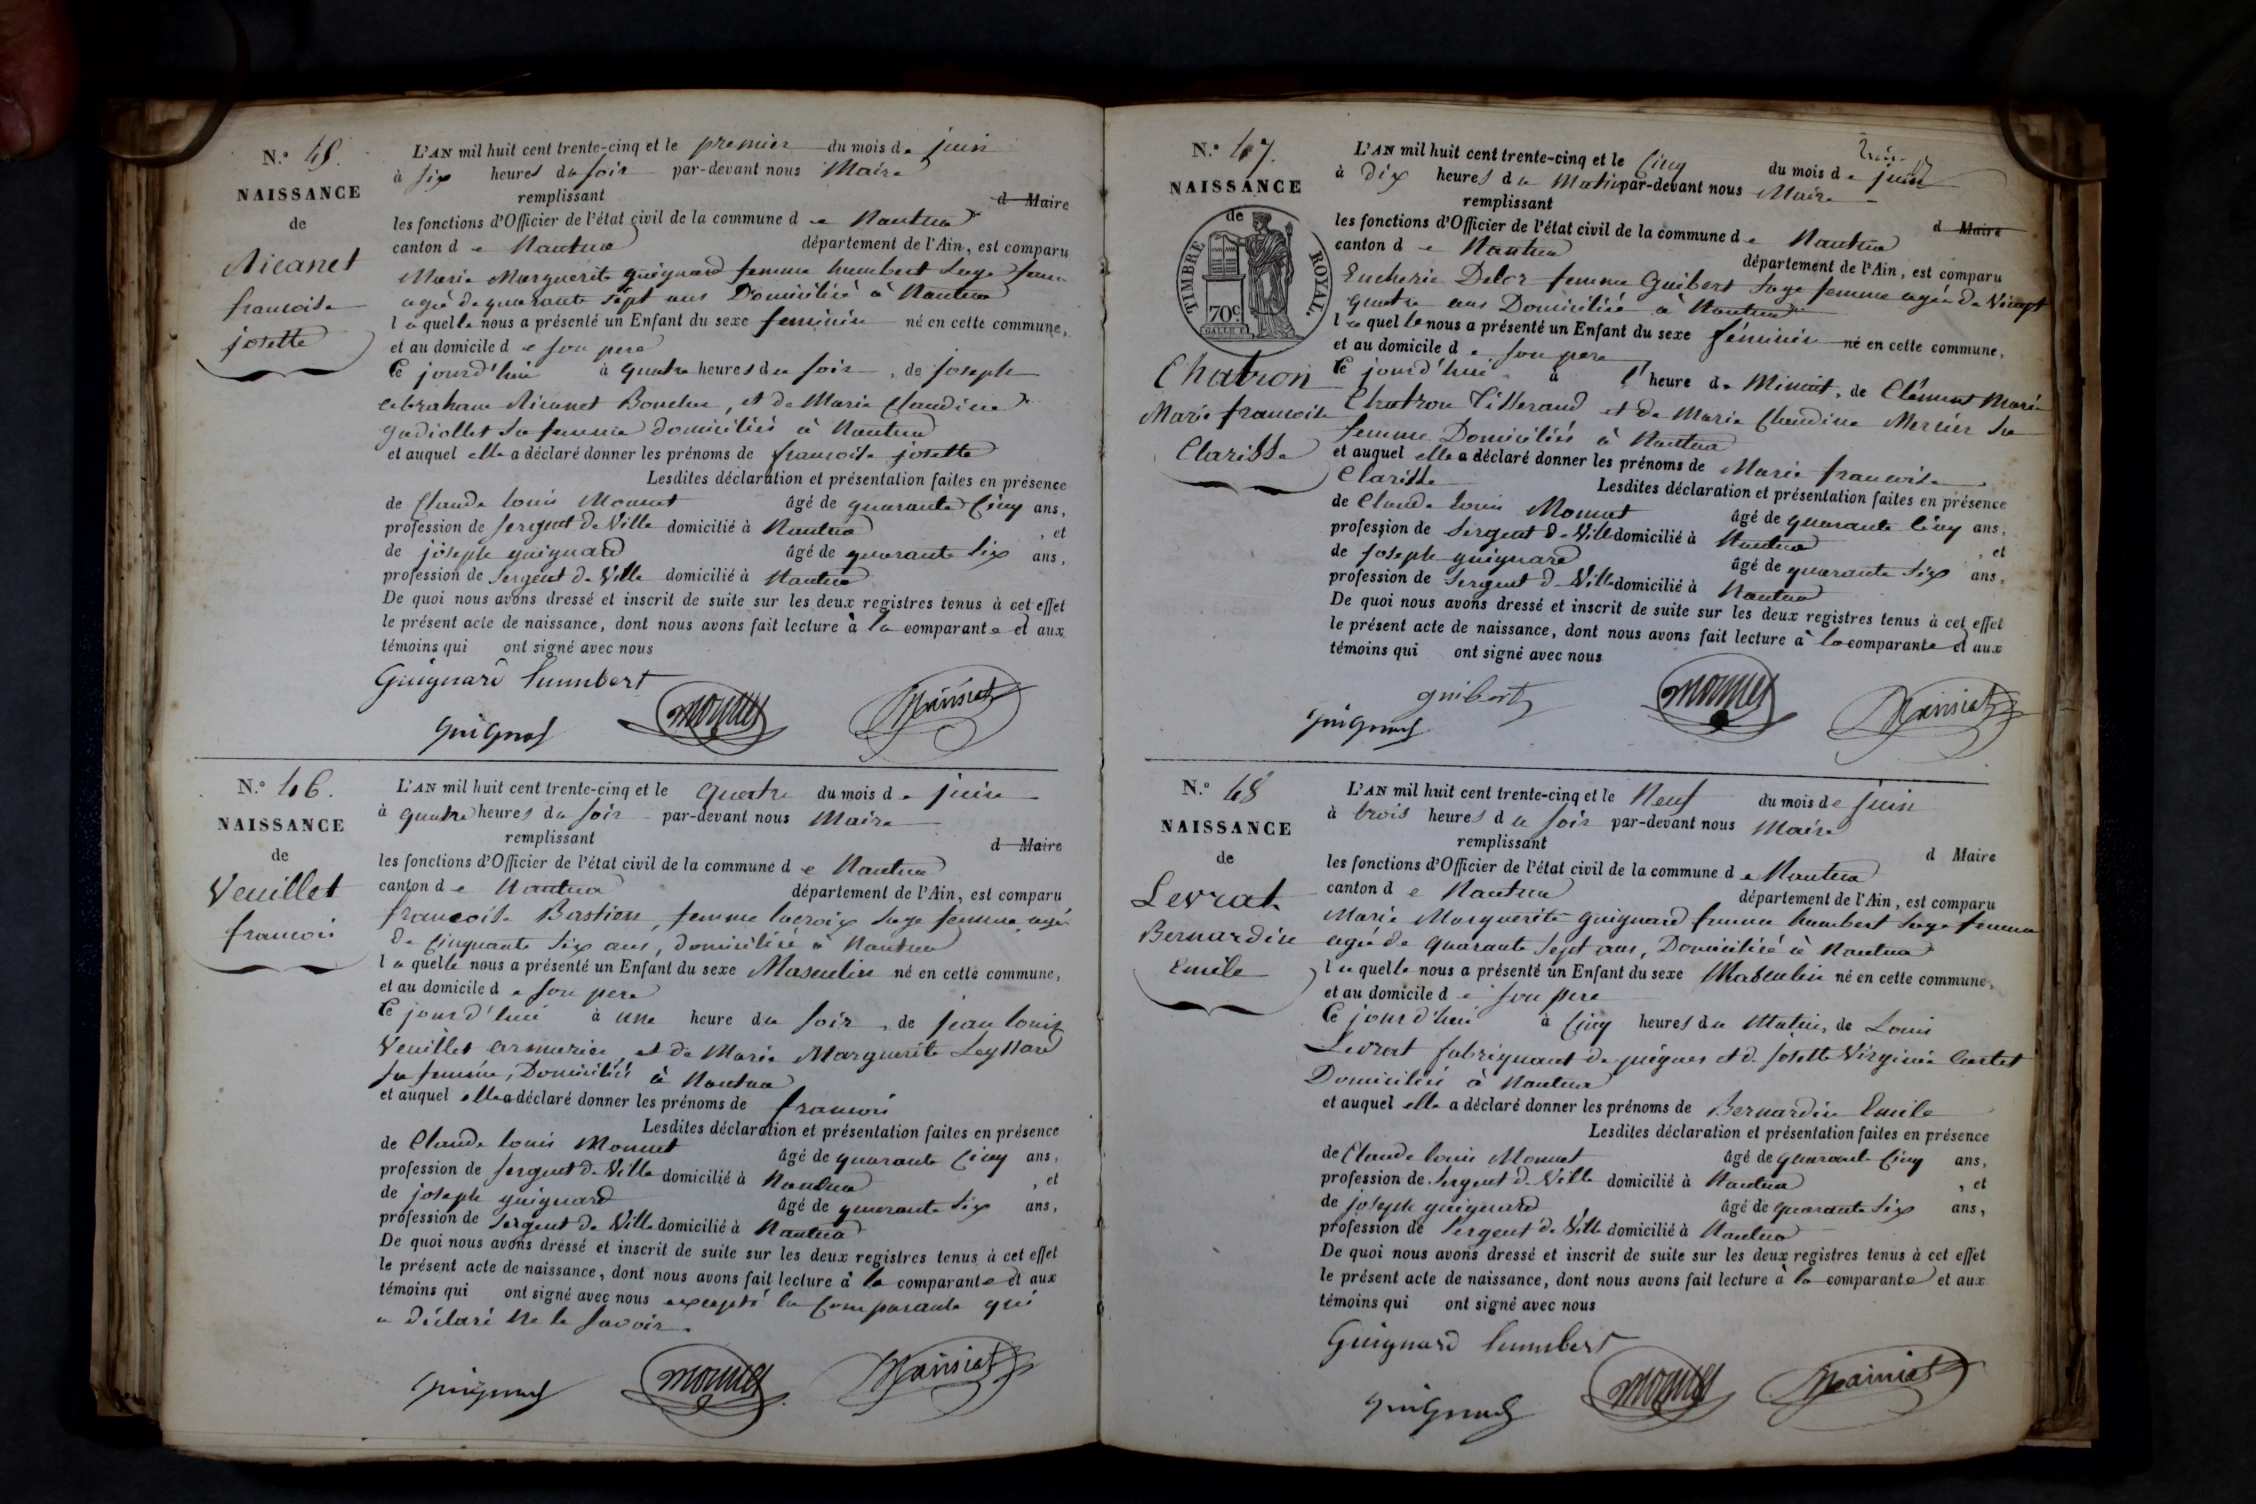 N.° 45.
NAISSANCE
de
Nicanet
françoise
josette
L'AN mil huit cent trente-cinq et le premier du mois de juin
à six heures du soir par-devant nous Maire
remplissant d Maire
les fonctions d'Officier de l'état civil de la commune de Nantua
canton de Nantua département de l'Ain, est comparu
Marie Marguerite guignard femme humbert sage femme
agée de quarante sept ans Domiciliée à Nantua
laquelle nous a présenté un Enfant du sexe feminin né en cette commune,
et au domicile de son pere
Ce jourd'hui à quatre heures du soir, de joseph
abraham Nicanet Boucher, et de Marie Claudine
gadiollet sa femme domiciliés à Nantua
et auquel elle a déclaré donner les prénoms de françoise josette
Lesdites déclaration et présentation faites en présence
de Claude louis Monnet âgé de quarante Cinq ans,
profession de sergent de Ville domicilié à Nantua, et
de joseph guignard âgé de quarante six ans,
profession de sergent de Ville domicilié à Nantua
De quoi nous avons dressé et inscrit de suite sur les deux registres tenus à cet effet
le présent acte de naissance, dont nous avons fait lecture à la comparante et aux
témoins qui ont signé avec nous
Guignard humbert
guignard monnet
N.° 46.
NAISSANCE
de
Veuillet
françois
L'AN mil huit cent trente-cinq et le quatre du mois de juin
à quatre heures du soir par-devant nous Maire
remplissant d Maire
les fonctions d'Officier de l'état civil de la commune de Nantua
canton de Nantua département de l'Ain, est comparu
françoise Bastian, femme lacroix sage femme, agée
de Cinquante six ans, domiciliée à Nantua
laquelle nous a présenté un Enfant du sexe Masculin né en cette commune,
et au domicile de son pere
Ce jourd'hui à une heure du soir, de jean louis
Veuillet armurier, et de Marie Marguerite Leyssard
sa femme, Domiciliés à Nantua
et auquel elle a déclaré donner les prénoms de françois
Lesdites déclaration et présentation faites en présence
de Claude louis Monnet âgé de quarante Cinq ans,
profession de sergent de Ville domicilié à Nantua, et
de joseph guignard âgé de quarante six ans,
profession de sergent de Ville domicilié à Nantua
De quoi nous avons dressé et inscrit de suite sur les deux registres tenus à cet effet
le présent acte de naissance, dont nous avons fait lecture à la comparante et aux
témoins qui ont signé avec nous excepté la Comparante qui
a déclaré ne le savoir.
guignard monnet
N.° 47.
NAISSANCE
de
TIMBRE ROYAL.
70c.
Chatron
Marie françoise
Clarisse
L'AN mil huit cent trente-cinq et le Cinq du mois de juin
à dix heures du Matin par-devant nous Maire
remplissant d Maire
les fonctions d'Officier de l'état civil de la commune de Nantua
canton de Nantua département de l'Ain, est comparu
Eucherie Delor femme Guibert sage femme agée de Vingt
quatre ans Domiciliée à Nantua
laquelle nous a présenté un Enfant du sexe féminin né en cette commune,
et au domicile de son pere
Ce jourd'hui à l' heure de Minuit, de Clément Marie
Chatron Tisserand et de Marie Claudine Mercier sa
femme Domiciliés à Nantua
et auquel elle a déclaré donner les prénoms de Marie françoise
Clarisse Lesdites déclaration et présentation faites en présence
de Claude louis Monnet âgé de quarante Cinq ans,
profession de sergent de Ville domicilié à Nantua, et
de joseph guignard âgé de quarante six ans,
profession de sergent de Ville domicilié à Nantua
De quoi nous avons dressé et inscrit de suite sur les deux registres tenus à cet effet
le présent acte de naissance, dont nous avons fait lecture à la comparante et aux
témoins qui ont signé avec nous
guibert
guignard monnet
N.° 48
NAISSANCE
de
Levrat
Bernardin
Emile
L'AN mil huit cent trente-cinq et le Neuf du mois de juin
à trois heures du soir par-devant nous Maire
remplissant d Maire
les fonctions d'Officier de l'état civil de la commune de Nantua
canton de Nantua département de l'Ain, est comparu
Marie Marguerite guignard femme humbert sage femme
agée de quarante sept ans, Domiciliée à Nantua
laquelle nous a présenté un Enfant du sexe Masculin né en cette commune,
et au domicile de son pere
Ce jourd'hui à Cinq heures du Matin, de Louis
Levrat fabriquant de peignes et de josette Virginie Cartet
Domiciliés à Nantua
et auquel elle a déclaré donner les prénoms de Bernardin Emile
Lesdites déclaration et présentation faites en présence
de Claude louis Monnet âgé de quarante Cinq ans,
profession de sergent de Ville domicilié à Nantua, et
de joseph guignard âgé de quarante six ans,
profession de sergent de Ville domicilié à Nantua
De quoi nous avons dressé et inscrit de suite sur les deux registres tenus à cet effet
le présent acte de naissance, dont nous avons fait lecture à la comparante et aux
témoins qui ont signé avec nous
Guignard humbert
guignard monnet